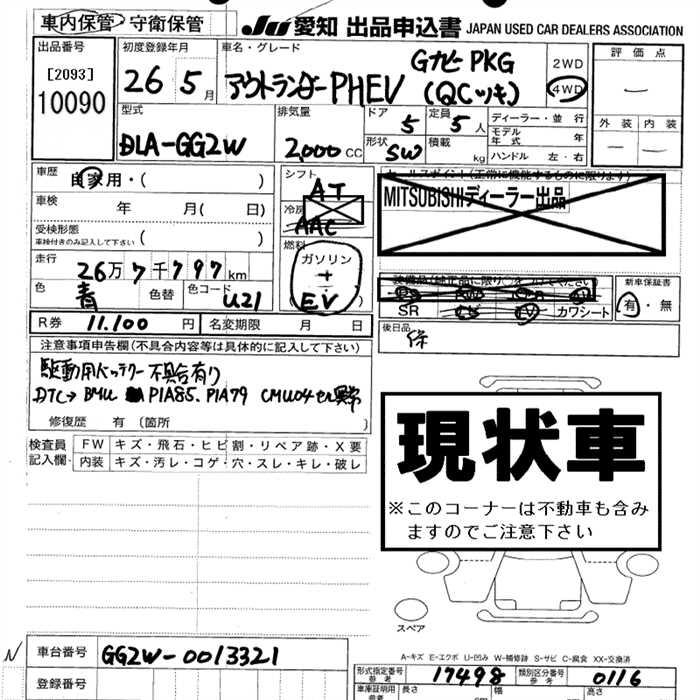 車内保管・守衛保管
JU 愛知 出品申込書 JAPAN USED CAR DEALERS ASSOCIATION
出品番号
[2093]
10090
初度登録年月
26 5月
車名・グレード
アウトランダーPHEV
Gナビ PKG
(QCツキ)
2WD
4WD
評価点
―
外装 内装
― ―
型式
DLA-GG2W
排気量
2,000 CC
ドア
5
定員
5人
形状
SW
積載
kg
ディーラー・並行
モデル年式 年
ハンドル 左・右
車歴
自家用・( )
車検
年 月( 日)
受検形態
車検付きのみ記入して下さい ( )
走行
26万7千797km
色
青
色替
色コード
U21
シフト
AT
冷房
AAC
燃料
ガソリン
+
EV
セールスポイント(正常に機能するものに限ります)
MITSUBISHIディーラー出品
装備品(純正品に限り)
SR
TV
カワシート
新車保証書
有・無
後日品
保
R券 11.100円
名変期限 月 日
注意事項申告欄(不具合内容等は具体的に記入して下さい)
駆動用バッテリー不具合有り
DTC→BMU P1A85、P1A79 CMU04セル異常
修復歴 有(箇所 )
検査員記入欄
FW キズ・飛石・ヒビ割・リペア跡・X要
内装 キズ・汚レ・コゲ・穴・スレ・キレ・破レ
現状車
※このコーナーは不動車も含み
ますのでご注意下さい
スペア
A-キズ E-エクボ U-凹み W-補修跡 S-サビ C-腐食 XX-交換済
N
車台番号
GG2W-0013321
登録番号
形式指定番号
参考
17498
類別区分番号
参考
0116
車庫証明用
参考
長さ
cm
幅
高さ